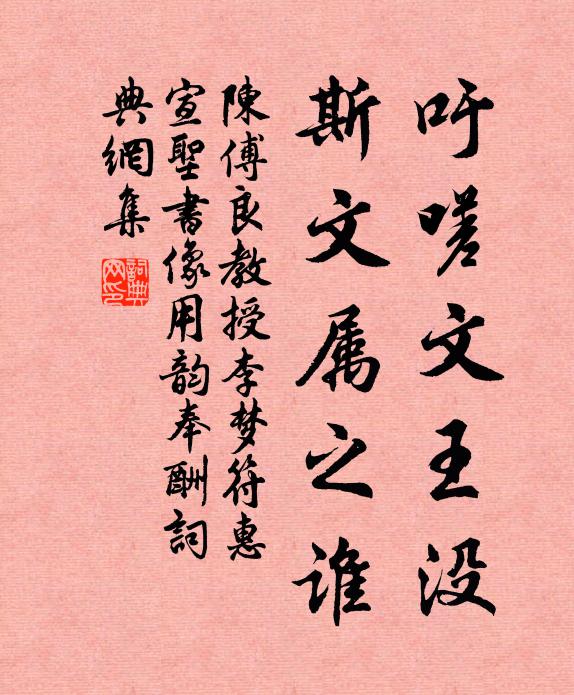 吁嗟文王没
斯文属之谁
陳傅良教授李梦符惠
宣聖書像用韵奉酬詞
典網集
詞典网印